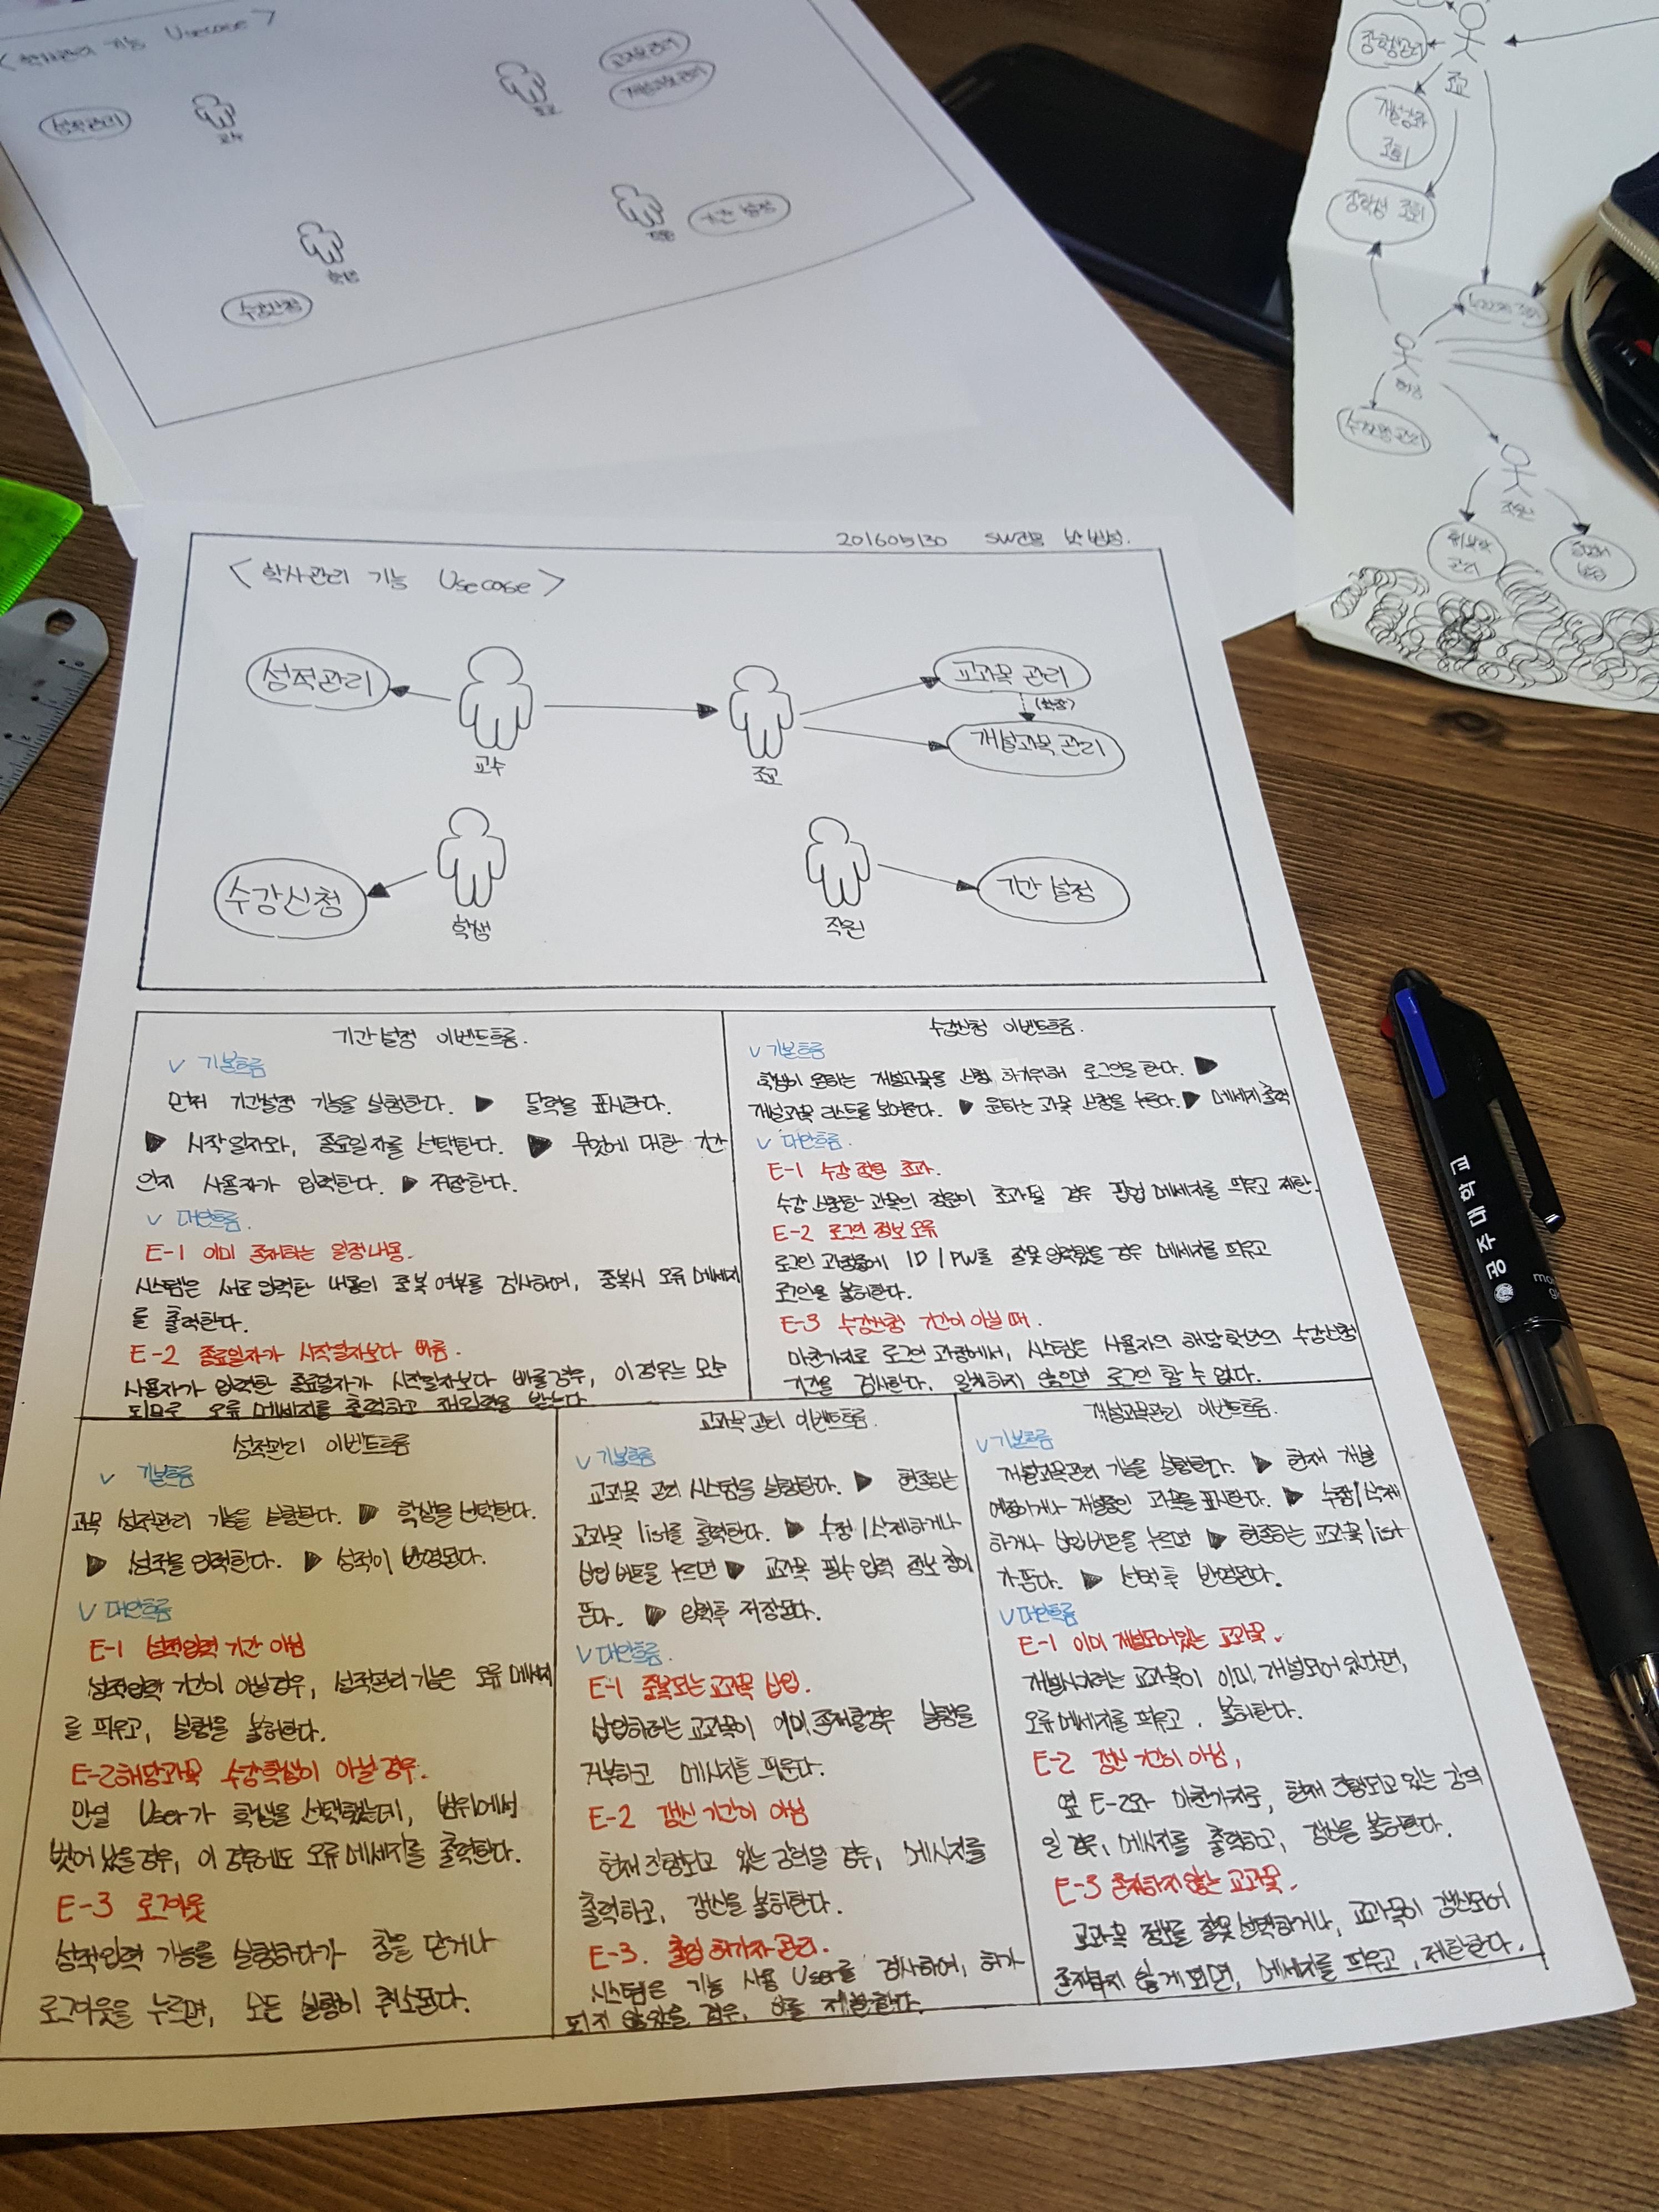 < 학사관리 기능 Usecase >
성적관리
교수
교과목관리
개설과목관리
조교
학생
수강신청
직원
기간 설정
장학관리
조교
조회
장학생 조회
학생
수강신청관리
직원
관리
20160530 SW
< 학사관리 기능 Usecase >
성적관리
교수
조교
교과목 관리
(확장)
개설과목 관리
수강신청
학생
직원
기간 설정
기간설정 이벤트흐름.
V 기본흐름
먼저 기간설정 기능을 실행한다. ▶ 달력을 표시한다.
▶ 시작일자와, 종료일자를 선택한다. ▶ 무엇에 대한 기간
인지 사용자가 입력한다. ▶ 저장한다.
V 대안흐름.
E-1 이미 존재하는 일정내용.
시스템은 서로 입력한 내용의 중복 여부를 검사하여, 중복시 오류 메세지
를 출력한다.
E-2 종료일자가 시작일자보다 빠름.
사용자가 입력한 종료일자가 시작일자보다 빠를경우, 이 경우는 모순
되므로 오류 메세지를 출력하고 재입력을 받는다.
수강신청 이벤트흐름.
V 기본흐름
학생이 원하는 개설과목을 신청 하기위해 로그인을 한다. ▶
개설과목 리스트를 보여준다. ▶ 원하는 과목 신청을 누른다. ▶ 메세지 출력
V 대안흐름.
E-1 수강 정원 초과.
수강 신청한 과목의 정원이 초과될 경우 팝업 메세지를 띄우고 제한.
E-2 로그인 정보 오류
로그인 과정중에 ID / PW를 잘못 입력했을 경우 메세지를 띄우고
로그인을 불허한다.
E-3 수강신청 기간이 아닐 때.
마찬가지로 로그인 과정에서, 시스템은 사용자의 해당 학년의 수강신청
기간을 검사한다. 일치하지 않으면 로그인 할 수 없다.
성적관리 이벤트흐름
V 기본흐름
과목 성적관리 기능을 실행한다. ▶ 학생을 선택한다.
▶ 성적을 입력한다. ▶ 성적이 반영된다.
V 대안흐름
E-1 성적입력 기간 아님
성적입력 기간이 아닐경우, 성적관리 기능은 오류 메세지
를 띄우고, 실행을 불허한다.
E-2 해당과목 수강학생이 아닐 경우.
만일 User가 학생을 선택했는데, 범위에서
벗어 났을경우, 이 경우에도 오류 메세지를 출력한다.
E-3 로그아웃
성적입력 기능을 실행하다가 창을 닫거나
로그아웃을 누르면, 모든 실행이 취소된다.
교과목 관리 이벤트흐름.
V 기본흐름
교과목 관리 시스템을 실행한다. ▶ 현존하는
교과목 list를 출력한다. ▶ 수정 / 삭제하거나
삽입 버튼을 누르면 ▶ 교과목 필수 입력 정보 창이
뜬다. ▶ 입력후 저장된다.
V 대안흐름.
E-1 중복되는 교과목 삽입.
삽입하려는 교과목이 이미 존재할경우 실행을
거부하고 메시지를 띄운다.
E-2 갱신 기간이 아님
현재 진행되고 있는 강의일 경우, 메시지를
출력하고, 갱신을 불허한다.
E-3. 출입 허가자 관리.
시스템은 기능 사용 User를 검사하여, 허가
되지 않았을 경우, 이를 제한한다.
개설과목관리 이벤트흐름.
V 기본흐름
개설과목관리 기능을 실행한다. ▶ 현재 개설
예정이거나 개설중인 과목을 표시한다. ▶ 수정/삭제
하거나 삽입버튼을 누르면 ▶ 현존하는 교과목 list
가 뜬다. ▶ 선택 후 반영된다.
V 대안흐름
E-1 이미 개설되어있는 교과목.
개설시키려는 교과목이 이미 개설되어 있다면,
오류메세지를 띄우고, 불허한다.
E-2 갱신 기간이 아님,
옆 E-2와 마찬가지로, 현재 진행되고 있는 강의
일 경우, 메시지를 출력하고, 갱신을 불허한다.
E-3 존재하지 않는 교과목.
교과목 정보를 잘못 선택하거나, 교과목이 갱신되어
존재하지 않게 되면, 메세지를 띄우고, 제한한다.
공주대학교